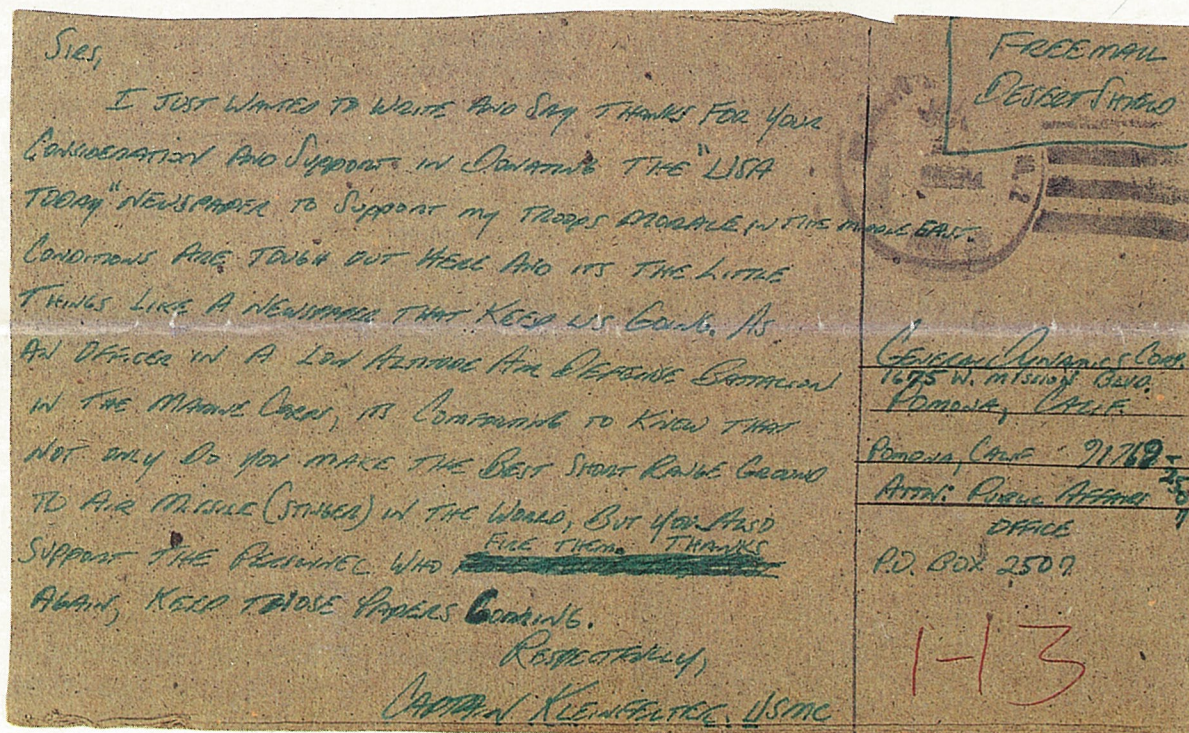 Sirs,
I JUST WANTED TO WRITE AND SAY THANKS FOR YOUR
CONSIDERATION AND SUPPORT IN DONATING THE "USA
TODAY" NEWSPAPER TO SUPPORT MY TROOPS MORALE IN THE MIDDLE EAST.
CONDITIONS ARE TOUGH OUT HERE AND ITS THE LITTLE
THINGS LIKE A NEWSPAPER THAT KEEP US GOING. AS
AN OFFICER IN A LOW ALTITUDE AIR DEFENSE BATTALION
IN THE MARINE CORPS, ITS COMFORTING TO KNOW THAT
NOT ONLY DO YOU MAKE THE BEST SHORT RANGE GROUND
TO AIR MISSILE (STINGER) IN THE WORLD, BUT YOU ALSO
SUPPORT THE PERSONNEL WHO FIRE THEM. THANKS
AGAIN, KEEP THOSE PAPERS COMING.
RESPECTFULLY,
CAPTAIN KLEINFELTER, USMC
FREE MAIL
DESERT SHIELD
GENERAL DYNAMICS CORP.
1675 W. MISSION BLVD.
POMONA, CALIF.
POMONA, CALIF. 91769-
ATTN: PUBLIC AFFAIRS
OFFICE
P.O. BOX 2507
1-13